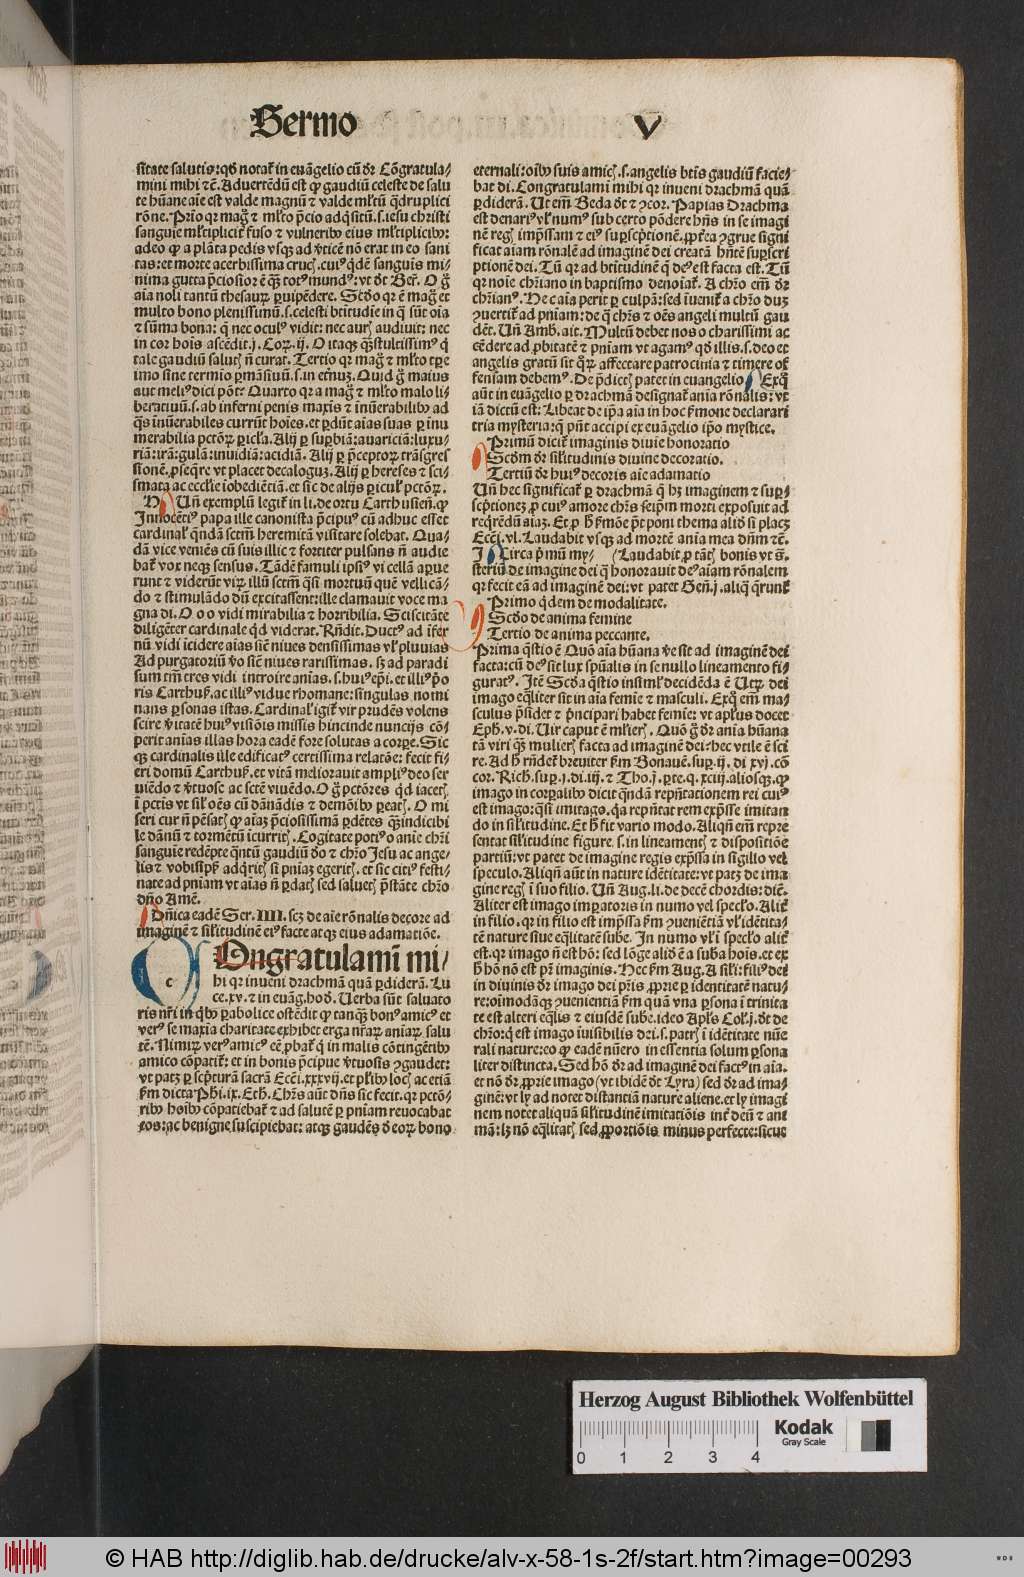 Sermo V
sitate salutis: qđ notat᷑ in euāgelio cū dr̄ Cōgratula/
mini mihi ⁊c̄. Aduertēdū est ꝙ gaudiū celeste de salu
te hūane aīe est valde magnū ⁊ valde mltū q̄druplici
rōne. Prīo qr mag̃ ⁊ mlto p̄cio adq̄sitū .s. iesu christi
sanguie mltiplicit᷑ fuso ⁊ vulneribꝰ eius mltiplicibꝰ:
adeo ꝙ a plāta pedis vsqꝫ ad v̄ticē nō erat in eo sani
tas: et morte acerbissima crucꝭ. cuiꝰ q̄dē sanguis mi/
nima gutta p̄ciosior ē qꝫ totꝰ mundꝰ: vt dt̄ Ber̄. O g̃
aīa noli tantū thesauꝝ ꝑuipēdere. Scd̄o qr ē mag̃ et
multo bono plenissimū .s. celesti btītudie in q̄ sūt oīa
⁊ sūma bona: q̄ nec oculꝰ vidit: nec aurꝭ audiuit: nec
in cor hoīs ascēdit .j. Coꝝ. ij. O itaqꝫ q̄stultissimꝰ q̄
tale gaudiū salutꝭ n̄ curat. Tertio qr mag̃ ⁊ mlto tꝑe
imo sine termīo ꝑmāsiuū .s. in et̄nuꝫ. Quid g̃ maius
aut meliꝰ dici pōt? Quarto qr a mag̃ ⁊ mlto malo li/
beratiuū .s. ab inferni penis maxīs ⁊ inūerabilibꝰ ad
q̄s inūerabiles currūt hoīes. et ꝑdūt aīas suas ꝑ inu
merabilia pctōꝝ ꝑicl̄a. Alij ꝑ suꝑbiā: auariciā: luxu/
riā: irā: gulā: inuidiā: acidiā. Alij ꝑ p̄ceptoꝝ trāsgres
sionē. ꝓseq̄re vt placet decaloguꝫ. Alij ꝑ hereses ⁊ sci/
smata ac eccl̄ie īobediētiā. et sic de alijs ꝑiculꝭ pctōꝝ.
N Uñ exemplū legit᷑ in li. de ortu Carthusieñ. ꝙ
Innocētiꝰ papa ille canonista p̄cipuꝰ cū adhuc esset
cardinal̓ q̄ndā sctm̄ heremitā visitare solebat. Qua/
dā vice veniēs cū suis illic ⁊ fortiter pulsans n̄ audie
bat᷑ vox neqꝫ sensus. Tādē famuli ipsiꝰ vi cellā aꝑue
runt ⁊ viderūt viꝝ illū sctm̄ q̄si mortuū quē vellicā/
do ⁊ stimulādo dū excitassent: ille clamauit voce ma
gna di. O o o vidi mirabilia ⁊ horribilia. Sciscitāte
diligēter cardinale qd̄ viderat. Rn̄dit. Ductꝰ ad īfer
nū vidi īcidere aīas sic̄ niues densissimas vl̓ pluuias
Ad purgatoriū v̓o sic̄ niues rarissimas. sꝫ ad paradi
sum tm̄ tres vidi introire aīas .s. huiꝰ ep̄i. et illiꝰ p̓o
ris Carthuẜ. ac illiꝰ vidue rhomane: singulas nomi
nans ꝑsonas istas. Cardinal̓ igit᷑ vir prudēs volens
scire v̓itatē huiꝰ visiōis missis hincinde nuncijs cō/
perit aīas illas hora eadē fore solutas a corꝑe. Sic
qꝫ cardinalis ille edificatꝰ certissima relatōe: fecit fi/
eri domū Carthuẜ. et vitā meliorauit ampliꝰ deo ser
uiēdo ⁊ v̓tuose ac sctē viuēdo. O g̃ pctōres qd̄ iacetꝭ
ī pctīs vt sil̓ oēs cū dānādis ⁊ demōibꝰ ꝑeatꝭ. O mi
seri cur n̄ pēsatꝭ ꝙ aīaꝫ p̄ciosissimā ꝑdētes q̄ꝫindicibi
le dānū ⁊ tormētū īcurritꝭ. Cogitate potiꝰ o aīe chr̄i
sanguie redēpte q̄ntū gaudiū dō ⁊ chr̄o Jesu ac ange/
lis ⁊ vobisip̄is adq̄ritꝭ si pn̄iaꝫ egeritꝭ. et sic citiꝰ festi/
nate ad pn̄iam vt aīas n̄ ꝑdatꝭ sed saluetꝭ p̄stāte chr̄o
dn̄o Amē.
Dn̄ica eadē Ser. IIII. scꝫ de aīe rōnalis decore ad
imaginē ⁊ sil̓itudinē eiꝰ facte atqꝫ eius adamatiōe.
COngratulamī mi/
hi qr inueni drachmā quā ꝑdiderā. Lu
ce. xv. ⁊ in euāg. hod̓. Uerba sūt saluato
ris nr̄i in q̄bꝰ ꝑabolice ostēdit ꝙ tanqꝫ bonꝰ amicꝰ et
verꝰ se maxīa charitate exhibet erga nr̄aꝝ aīaꝝ salu
tē. Nimiꝝ verꝰ amicꝰ cē ꝓbat᷑ q̄ in malis cōtingētibꝰ
amico cōpatit᷑: et in bonis p̄cipue v̓tuosis ꝯgaudet:
vt patꝫ ꝑ scpturā sacrā Ecc̄i. xxxvij. et pl̓ibꝰ locꝭ ac etiā
ẜm dicta Ph̓i. ix. Eth. Chr̄s aūt dn̄s sic fecit. qr pctō/
ribꝰ hoībꝰ cōpatiebat᷑ ⁊ ad salutē ꝑ pn̄iam reuocabat
eos: ac benigne suscipiebat: atqꝫ gaudēs d̓ eoꝝ bono
eternali: oībꝰ suis amicꝭ .s. angelis btīs gaudiū facie/
bat di. Congratulamini mihi qr inueni drachmā quā
ꝑdiderā. Ut em̄ Beda dt̄ ⁊ ꝯcor. Papias Drachma
est denariꝰ vl̓ numꝰ sub certo pōdere hn̄s in se imagi
nē regꝭ imp̄ssam ⁊ eiꝰ suꝑscp̄tionē. ꝓpt̓ea ꝯgrue signi
ficat aīam rōnalē ad imaginē dei creatā hn̄tē suꝑscri
ptionē dei. Tū qr ad btītudinē q̄ deꝰ est facta est. Tū
qr noīe chr̄iano in baptismo denoīat᷑. A chr̄o em̄ dr̄
chr̄ianꝰ. Hec aīa perit ꝑ culpā: sed īuenit᷑ a chr̄o duꝫ
ꝯuertit᷑ ad pn̄iam: de q̄ chr̄s ⁊ oēs angeli multū gau
dēt. Uñ Amb. ait. Multū debet nos o charissimi ac
cēdere ad ꝓbitatē ⁊ pn̄iam vt agamꝰ qđ illis .s. deo et
angelis gratū sit q̄ꝝ affectare patrocinia ⁊ timere of
fensam debemꝰ. De p̄dictꝭ patet in euangelio Exq̄
aūt in euāgelio ꝑ drachmā designat᷑ aīa rōnalis: vt
iā dictū est: Libeat de ip̄a aīa in hoc ẜmone declarari
tria mysteria: q̄ pn̄t accipi ex euāgelio ip̄o mystice.
Primū dicit᷑ imaginis diuīe honoratio
Scd̄m dr̄ sil̓itudinis diuine decoratio.
Tertiū dr̄ huiꝰ decoris aīe adamatio
Uñ hec significat᷑ ꝑ drachmā q̄ hꝫ imaginem ⁊ suꝑ/
scp̄tioneꝫ ꝓ cuiꝰ amore chr̄s seip̄m morti exposuit ad
req̄rēdū aīaꝫ. Et ꝓ h̓ ẜmōe p̄t poni thema aliđ si placꝫ
Ecc̄i. vl. Laudabit vsqꝫ ad mortē aīa mea dn̄m ⁊c̄.
I Circa p̓mū my/ (Laudabit ꝓ tātꝭ bonis vt s̄.
steriū de imagine dei q̄ honorauit deꝰ aīam rōnalem
qr fecit eā ad imaginē dei: vt patet Geñ. j. aliq̄ q̄runt᷑
Primo q̄dem de modalitate.
Scd̄o de anima femine
Tertio de anima peccante.
Prima q̄stio ē Quō aīa hūana v̓e sit ad imaginē dei
facta: cū deꝰ sit lux spūalis in se nullo lineamento fi/
guratꝰ. Itē Scd̄a q̄stio insiml̓ decidēda ē Utꝝ dei
imago eq̄liter sit in aīa femīe ⁊ masculi. Exq̄ em̄ ma/
sculus p̄sidet ⁊ p̓ncipari habet femīe: vt apl̓us docet
Eph. v. di. Uir caput ē mlierꝭ. Quō g̃ dr̄ aīa hūana
tā viri qꝫ mulierꝭ facta ad imaginē dei: hec vtile ē sci
re. Ad h̓ rn̄det᷑ breuiter ẜm Bonauē. suꝑ. ij. di xvj. cō
cor. Rich. suꝑ. j. di. iij. ⁊ Tho. j. ꝑte. q. xciij. aliosqꝫ. ꝙ
imago in corꝑalibꝰ dicit q̄ndā rep̄n̄tationem rei cuiꝰ
est imago: q̄si imitago. q̄a rep̄n̄tat rem exp̄sse imitan
do in sil̓itudine. Et h̓ fit vario modo. Aliqn̄ em̄ repre
sentat sil̓itudine figure .s. in lineamentꝭ ⁊ dispositiōe
partiū: vt patet de imagine regis exp̄ssa in sigillo vel
speculo. Aliqn̄ aūt in nature idētitate: vt patꝫ de ima
gine regꝭ ī suo filio. Uñ Aug. li. de decē chordis: dic̄.
Aliter est imago imꝑatoris in numo vel specl̓o. Alit᷑
in filio. qr in filio est imp̄ssa ẜm ꝯueniētiā vl̓ idētita/
tē nature siue eq̄litatē sube. In numo vl̓ ī specl̓o alit᷑
est. qr imago n̄ est hō: sed lōge aliđ ē a suba hoīs. et ex
h̓ hō nō est p̄t imaginis. Hec ẜm Aug. A sil̓i: filiꝰ dei
in diuinis dr̄ imago dei pr̄is ꝓprie ꝑ identitatē natu/
re: oīmodāqꝫ ꝯuenientiā ẜm quā vna ꝑsona ī trinita
te est alteri eq̄lis ⁊ eiusdē sube. ideo Apl̓s Col. j. dt̄ de
chr̄o: q̄ est imago īuisibilis dei .s. patrꝭ ī idētitate nūe
rali nature: eo ꝙ eadē nūero in essentia solum ꝑsona
liter distincta. Sed hō dr̄ ad imaginē dei factꝰ in aīa.
et nō dr̄ ꝓprie imago (vt ibidē dt̄ Lyra) sed dr̄ ad ima/
ginē: vt ly ad notet distantiā nature aliene. et ly imagi
nem notet aliquā sil̓itudinē imitatiōis int᷑ deū ⁊ ani
mā: lꝫ nō eq̄litatꝭ sed ꝓportiōis minus perfecte: sicut
Herzog August Bibliothek Wolfenbüttel
Kodak
Gray Scale
0 1 2 3 4
© HAB http://diglib.hab.de/drucke/alv-x-58-1s-2f/start.htm?image=00293